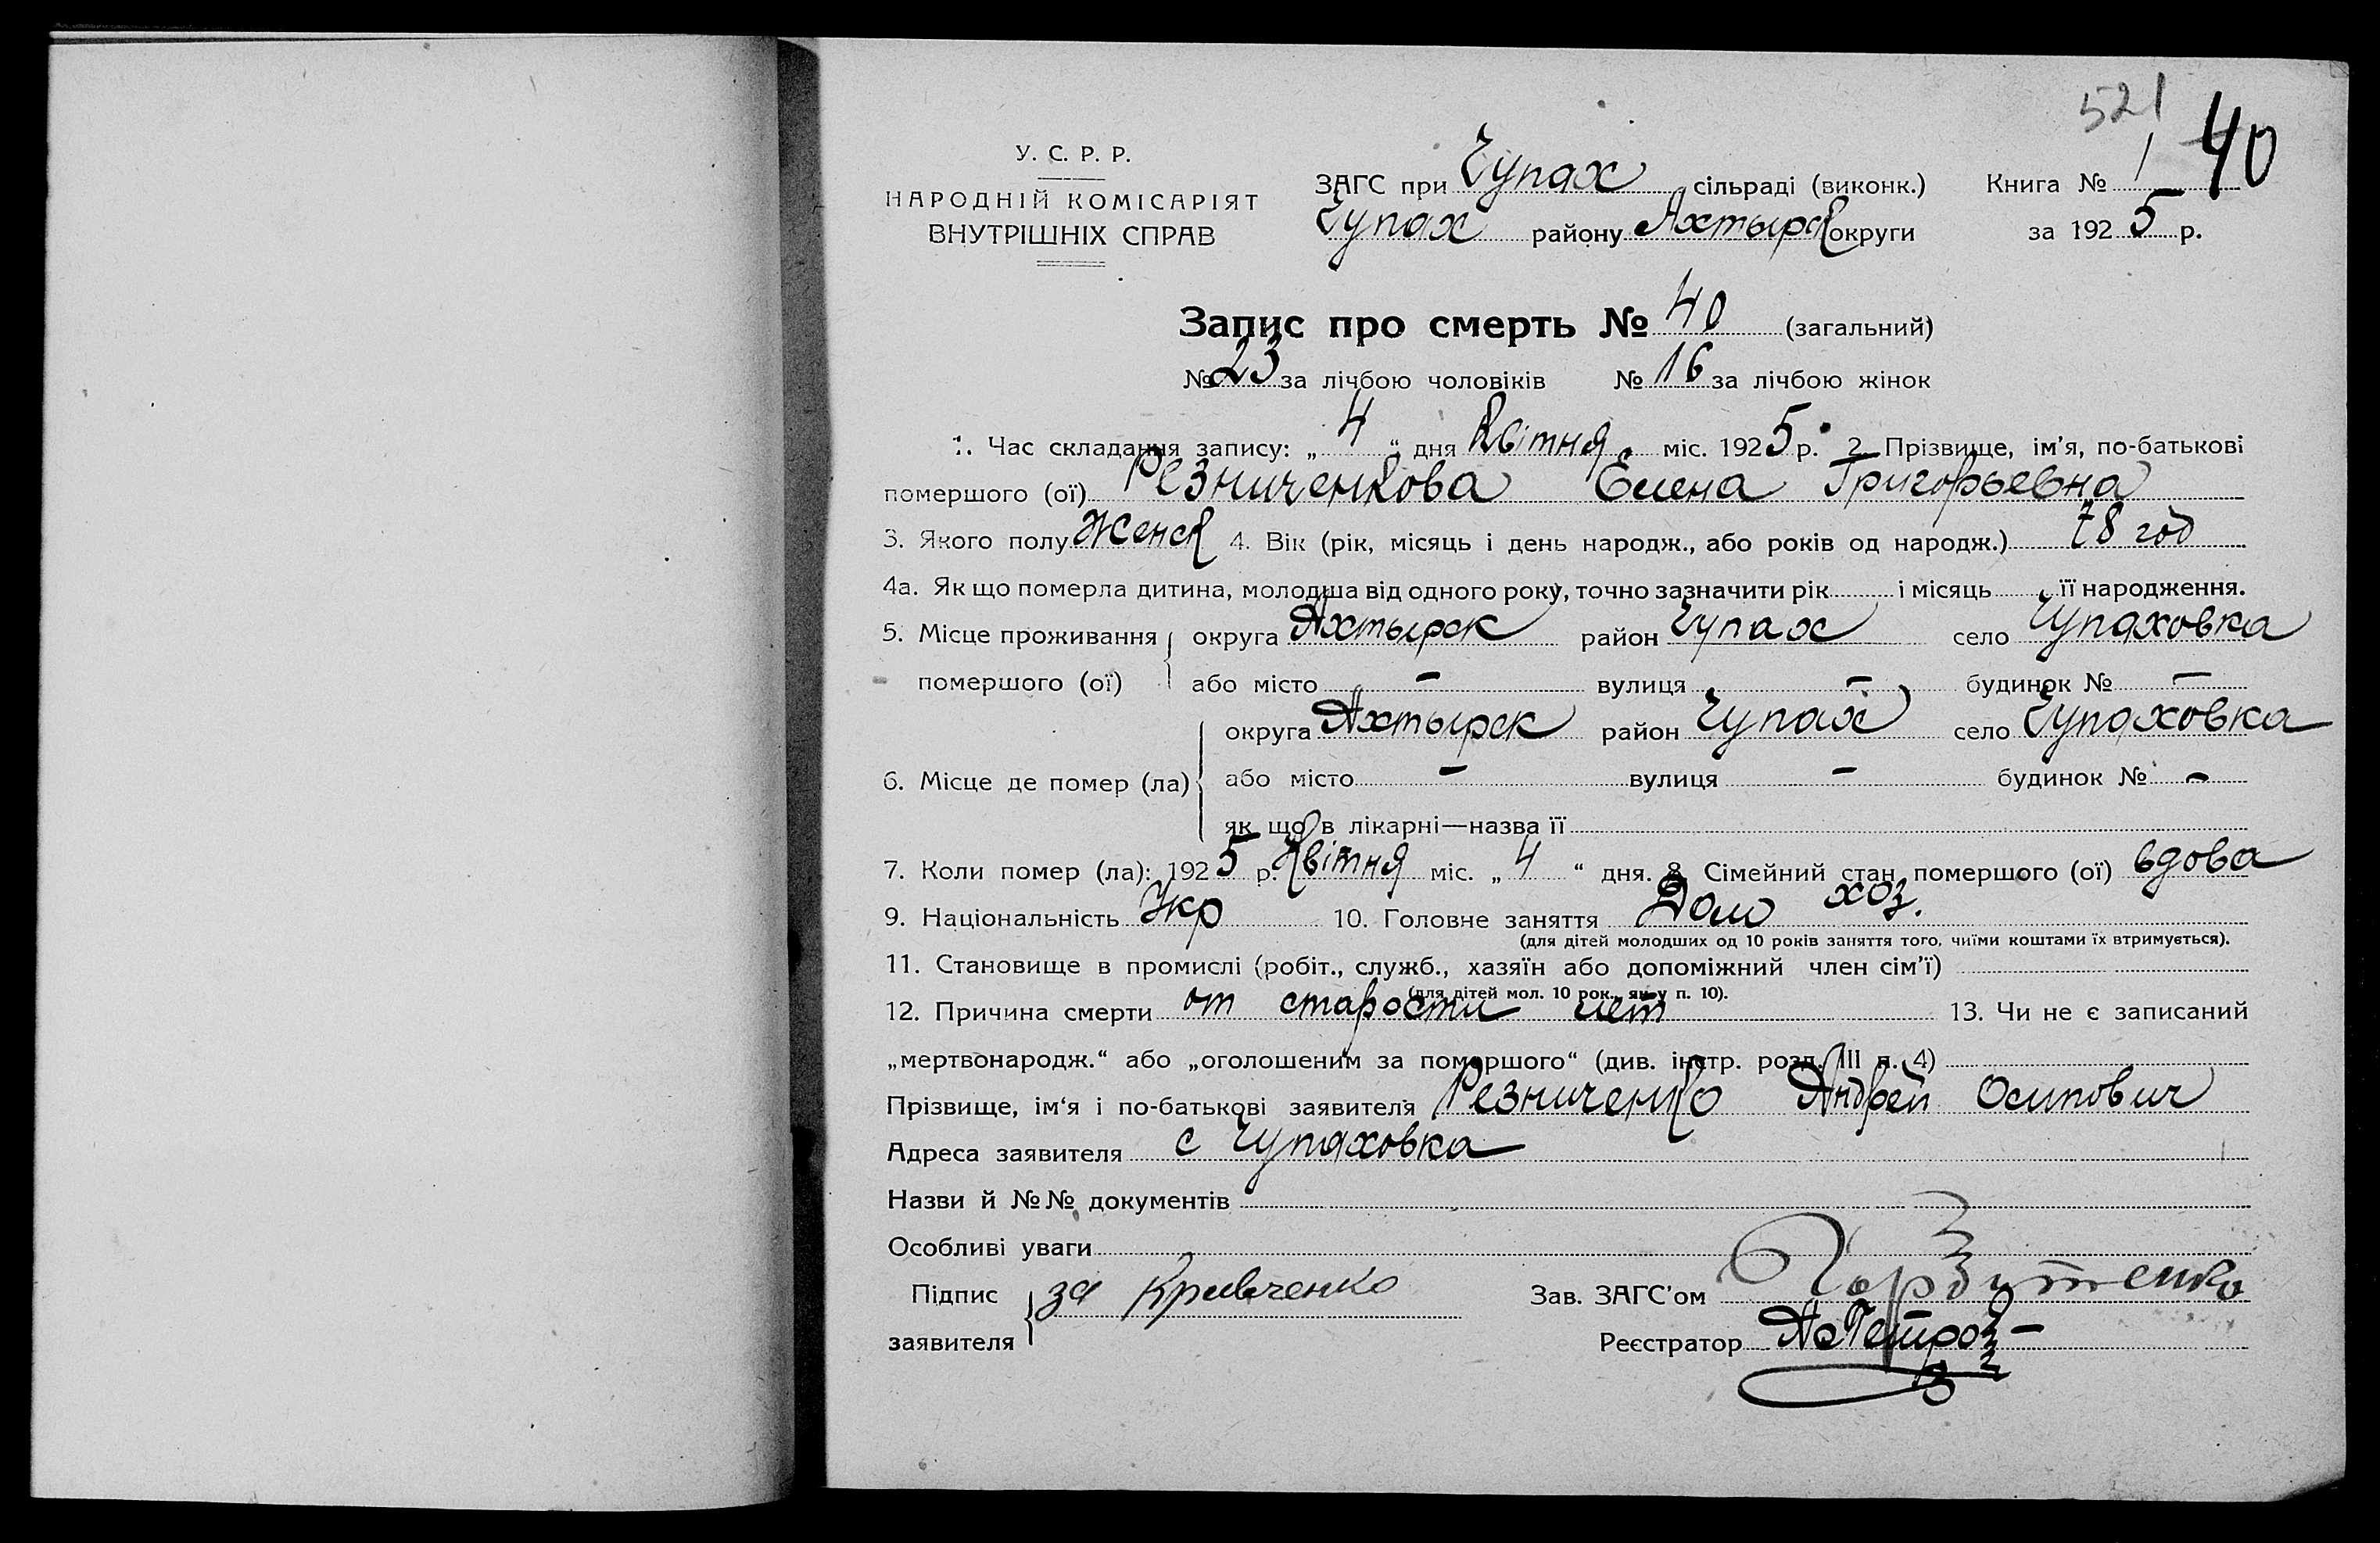 521
40
У. С. Р. Р.
НАРОДНІЙ КОМІСАРІЯТ
ВНУТРІШНІХ СПРАВ
ЗАГС при Чупах сільраді (виконк.) Книга № 1
Чупах району Ахтырск округи за 1925 р.
Запис про смерть № 40 (загальний)
№ 23 за лічбою чоловіків № 16 за лічбою жінок
1. Час складання запису: „4“ дня Квітня міс. 1925 р. 2. Прізвище, ім'я, по-батькові
помершого (ої) Резниченкова Елена Григорьевна
3. Якого полу Женск 4. Вік (рік, місяць і день народж., або років од народж.) 78 год
4а. Як що померла дитина, молодша від одного року, точно зазначити рік і місяць її народження.
5. Місце проживання округа Ахтырск район Чупах село Чупаховка
помершого (ої) або місто – вулиця – будинок № –
округа Ахтырск район Чупах село Чупаховка
6. Місце де помер (ла) або місто – вулиця – будинок № –
як що в лікарні—назва її
7. Коли помер (ла): 1925 р. Квітня міс. „4“ дня. 8. Сімейний стан помершого (ої) вдова
9. Національність Укр 10. Головне заняття Дом хоз.
(для дітей молодших од 10 років заняття того, чиїми коштами їх втримується).
11. Становище в промислі (робіт., служб., хазяїн або допоміжний член сім'ї)
(для дітей мол. 10 рок., як у п. 10).
12. Причина смерти от старости лет 13. Чи не є записаний
„мертвонародж.“ або „оголошеним за помершого“ (див. інстр. розд. III п. 4)
Прізвище, ім'я і по-батькові заявителя Резниченко Андрей Осипович
Адреса заявителя с Чупаховка
Назви й №№ документів
Особливі уваги
Підпис за Кривченко Зав. ЗАГС'ом
заявителя Реєстратор